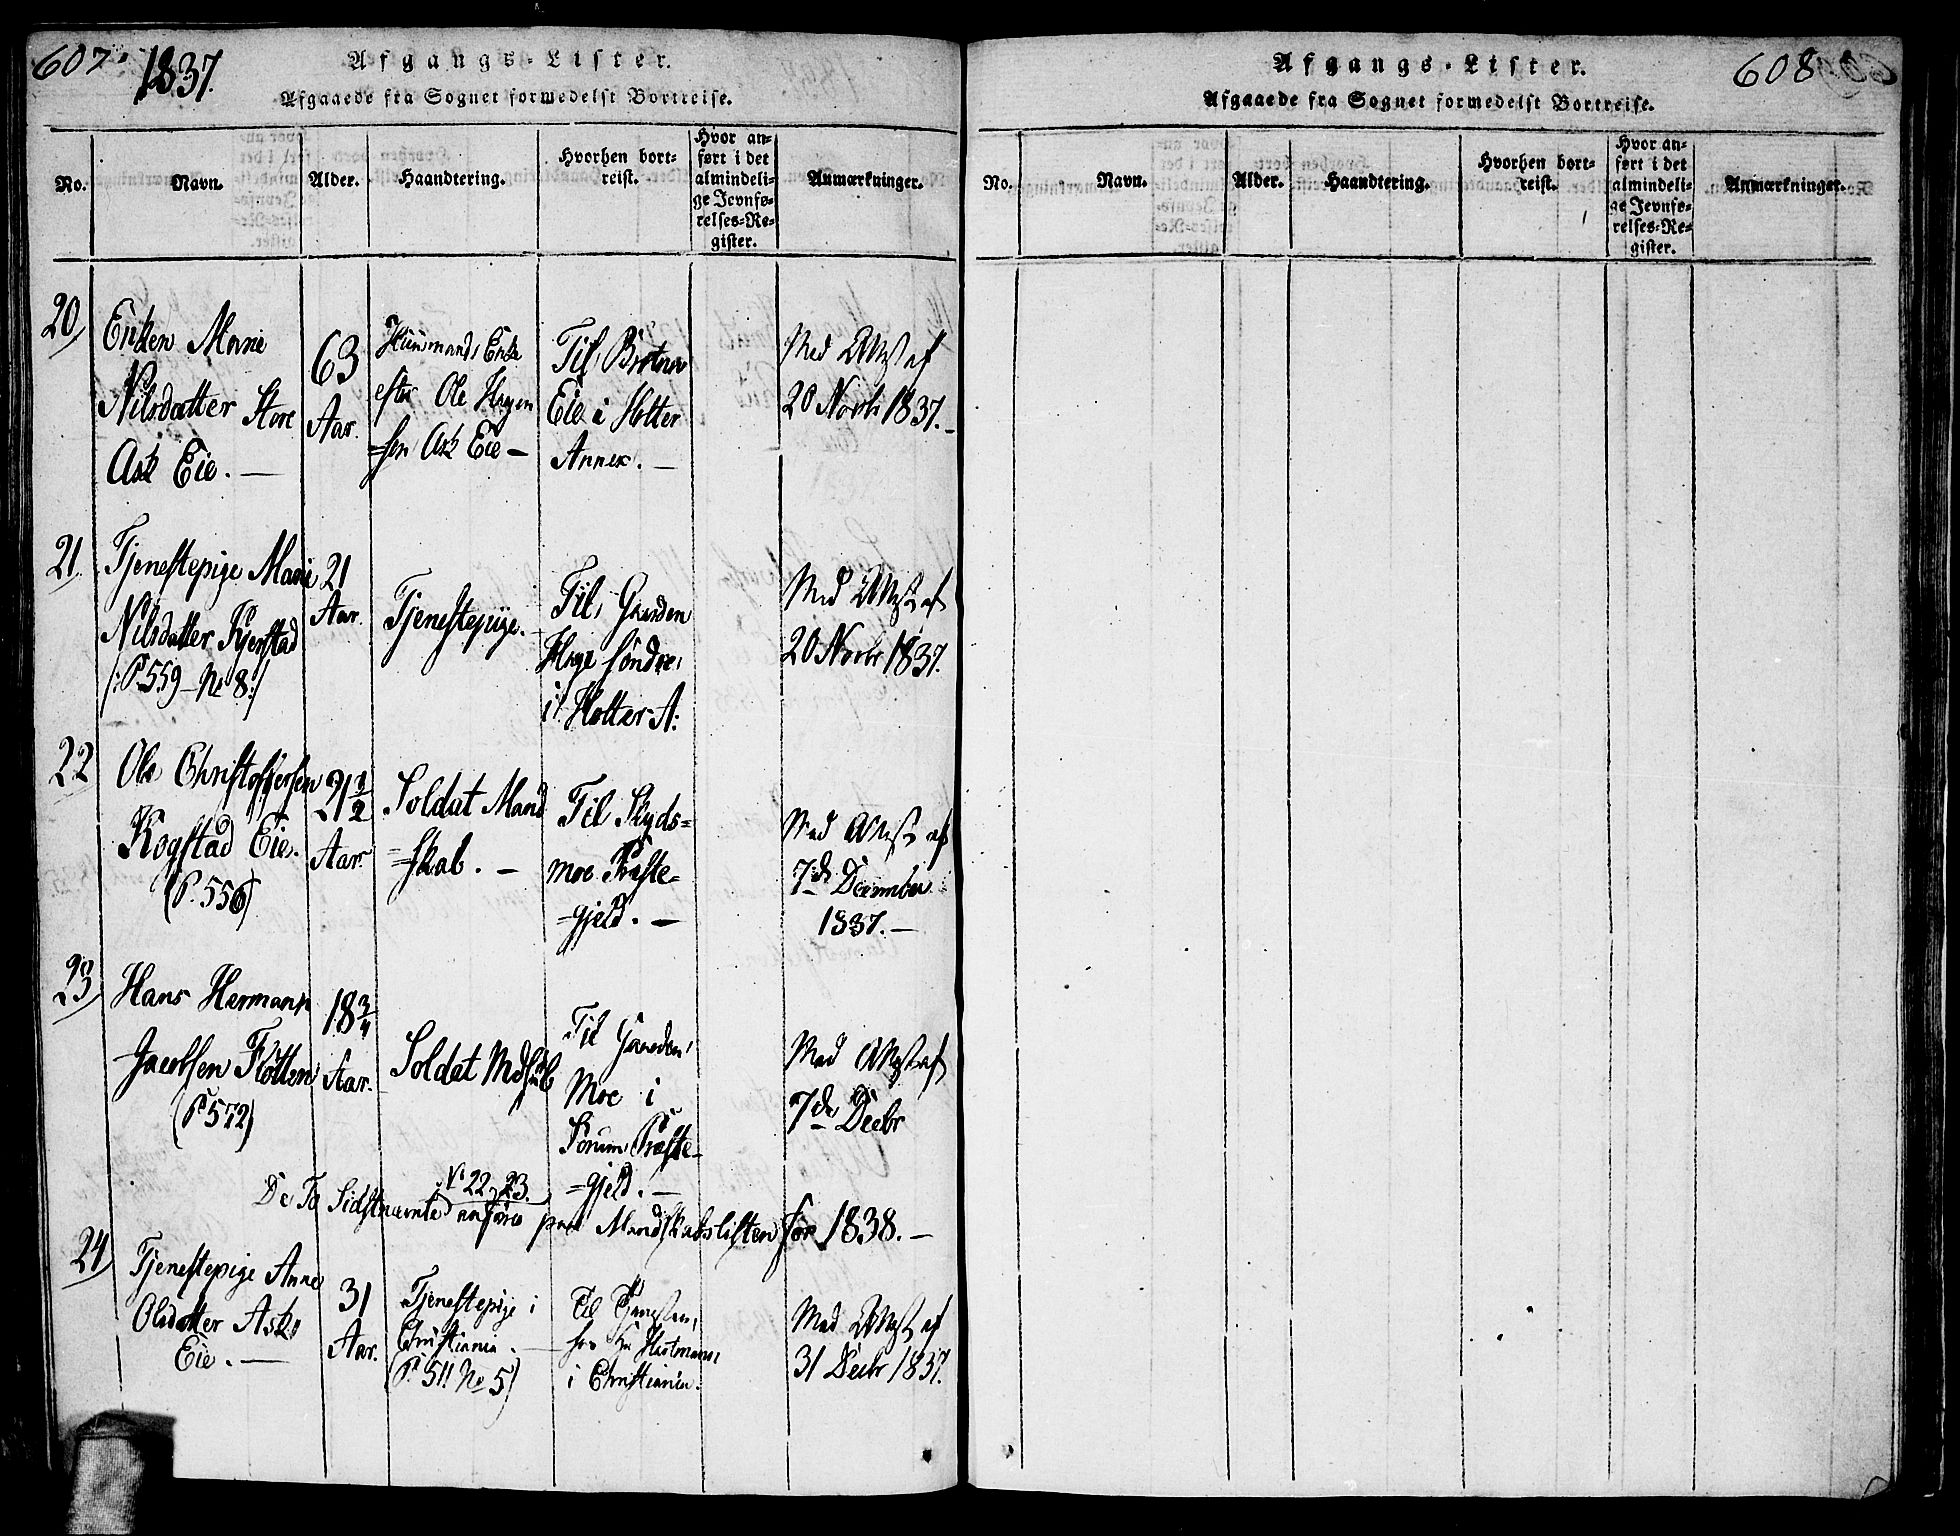 607. 1837.
Afgangs-Lister.
Afgaaede fra Sognet formedelst Bortreise.
No.
Navn.
Alder.
Haandtering.
Hvorhen bort-
reist.
Hvor an-
ført i det
almindeli-
ge Jevnfø-
relses-Re-
gister.
Anmærkninger.
20
Enken Marie
Nilsdatter Store
Ask Eie. —
63
Aar.
Huusmands Enke
efter Ole Hagen
=sen Ask Eie —
Til
Eie i Holter
Annex. —
Med Attest af
20 Novbr 1837. —
21
Tjenestepige Marie
Nilsdatter Kjerstad
/: P. 559 – No 8 :/
21
Aar.
Tjenestepige. —
Til Gaarden
Hage søndre
i Holter A:
Med Attest af
20 Novbr 1837.
22
Ole Christoffersen
Kogstad Eie.
(P. 556)
21 1/2
Aar.
Soldat Mand
=skab. —
Til Skyds=
moe Præste-
=gjeld. —
Med Attest af
7de December
1837. —
23
Hans Hermann
Jacobsen Flotten
(P 572)
18 3/4
Aar.
Soldat Mdskb
Til Gaarden
Moe i
Sørum Præste-
=gjeld. —
Med Attest af
7de Decbr
No 22 23.
De To Sidstnævnte anføres paa Mandskabslisten for 1838. —
24
Tjenestepige Anne
Olsdatter Ask
Eie. —
31
Aar.
Tjenestepige i
Christiania. —
(P. 511 No 5)
Til Tjenesten
hos Hartmann
i Christiania.
Med Attest af
31 Decbr 1837.
Afgangs-Lister.
608
Afgaaede fra Sognet formedelst Bortreise.
No.
Navn.
Alder.
Haandtering.
Hvorhen bort-
reist.
Hvor an-
ført i det
almindeli-
ge Jevnfø-
relses-Re-
gister.
Anmærkninger.